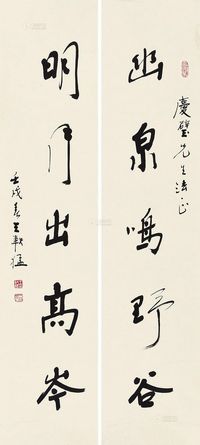 慶璧先生法正
幽泉鳴野谷
明月出高岑
壬戌春王軟猛